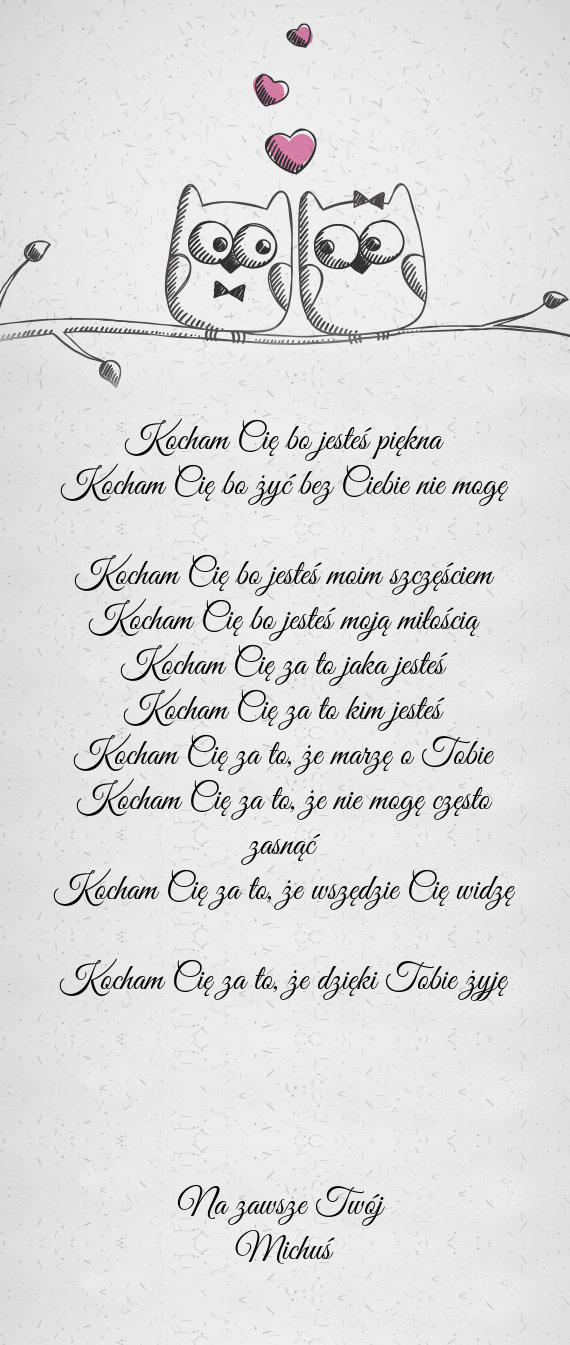 Kocham Cię bo jesteś piękna
Kocham Cię bo żyć bez Ciebie nie mogę
Kocham Cię bo jesteś moim szczęściem
Kocham Cię bo jesteś moją miłością
Kocham Cię za to jaka jesteś
Kocham Cię za to kim jesteś
Kocham Cię za to, że marzę o Tobie
Kocham Cię za to, że nie mogę często
zasnąć
Kocham Cię za to, że wszędzie Cię widzę
Kocham Cię za to, że dzięki Tobie żyję
Na zawsze Twój
Michuś